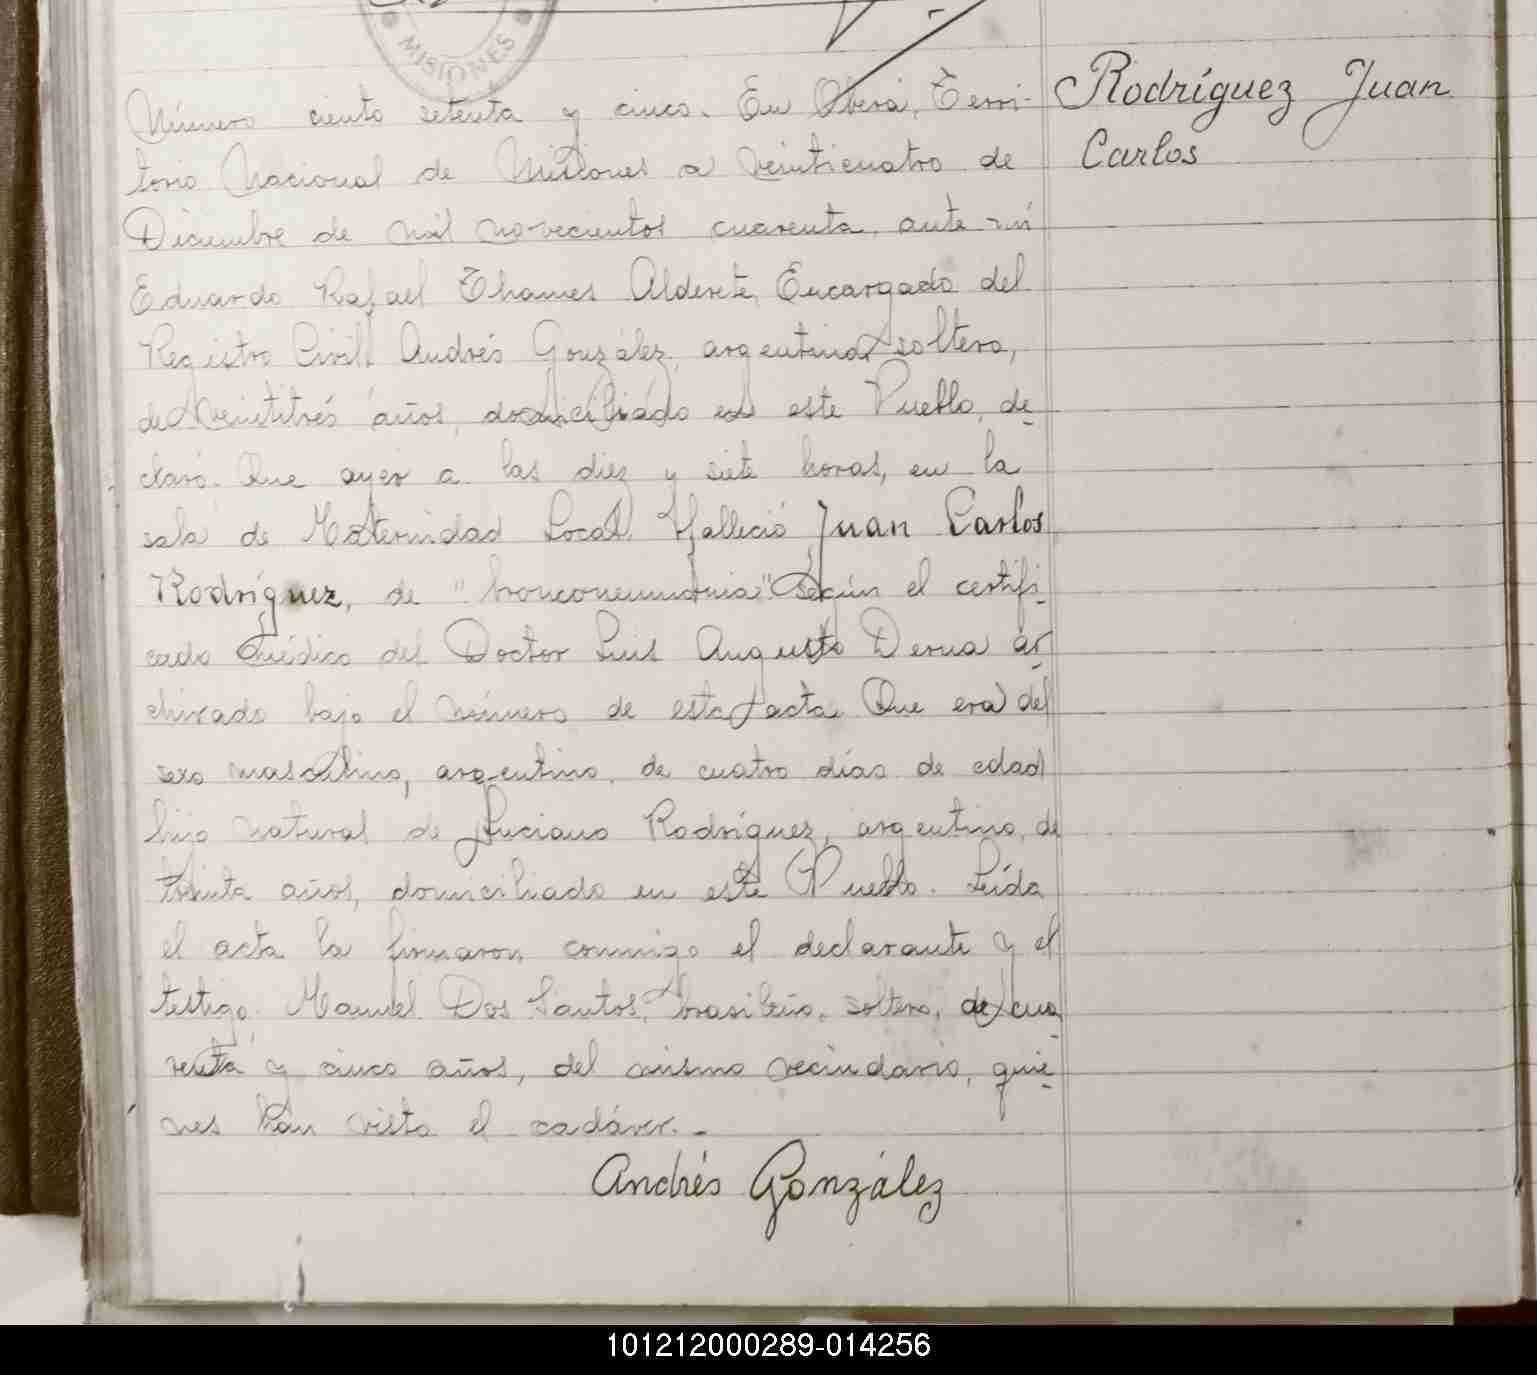 MISIONES
Rodríguez Juan
Carlos
Número ciento setenta y cinco. En Oberá, Terri-
torio Nacional de Misiones a veinticuatro de
Diciembre de mil novecientos cuarenta, ante mí
Eduardo Rafael Thames Alderete, Encargado del
Registro Civil, Andrés González, argentino, soltero,
de veintitrés años, domiciliado en este Pueblo, de-
claró: Que ayer a las diez y siete horas, en la
sala de Maternidad Local, falleció Juan Carlos
Rodríguez, de "bronconeumonia" según el certifi-
cado médico del Doctor Luis Augusto Derna ar-
chivado bajo el número de esta acta. Que era del
sexo masculino, argentino, de cuatro días de edad
hijo natural de Luciano Rodríguez, argentino, de
treinta años, domiciliado en este Pueblo. Leída
el acta la firmaron conmigo el declarante y el
testigo: Manuel Dos Santos, brasileño, soltero, de cua-
renta y cinco años, del mismo vecindario, quie-
nes han visto el cadáver.-
Andrés González
101212000289-014256